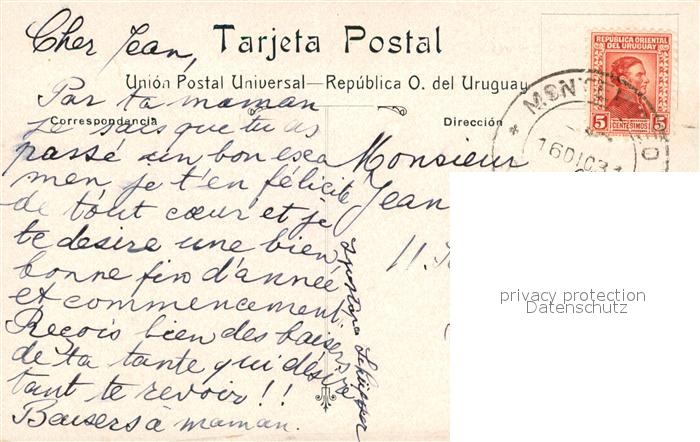 Cher Jean,
Tarjeta Postal
Unión Postal Universal—República O. del Uruguay
REPUBLICA ORIENTAL
DEL URUGUAY
5 CENTÉSIMOS 5
16 DIC 31
Correspondencia
Dirección
Par ta maman
je sais que tu as
passé un bon exa
men, je t'en félicite
de tout cœur et je
te desire une bien
bonne fin d'année
et commencement.
Reçois bien des baisers
de ta tante qui désire
tant te revoir!!
Baisers à maman.
Monsieur
Jean
11.
privacy protection
Datenschutz